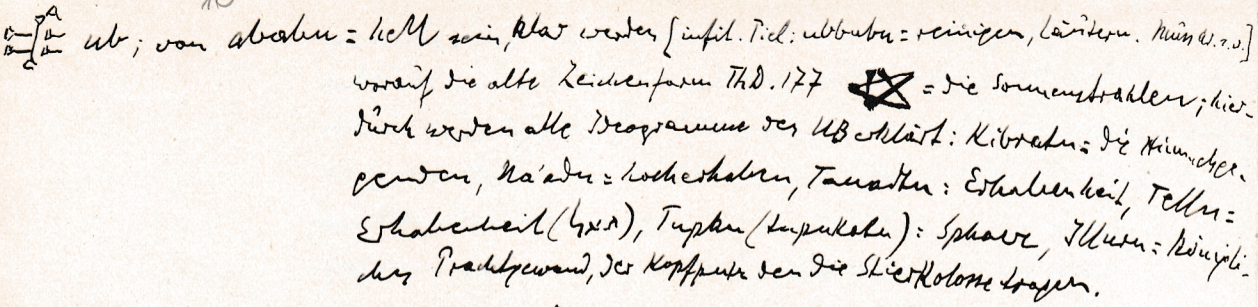 ub; von ababu = hell sein, klar werden [infit. Tiel: ubbubu = reinigen, läutern. Muss
worauf die alte Zeichenform ThD. 177 = die Sonnenstrahlen; hier-
durch werden alle Ideogramme des UB erklärt: Kibratu = die Himmelsge-
genden, Na'adu = hocherhaben, Tanadtu = Erhabenheit, Tellu =
Erhabenheit ( ), Tupku (tupukatu) = Sphaere, Illuru = königli-
ches Prachtgewand, der Kopfputz den die Stierkolosse tragen.